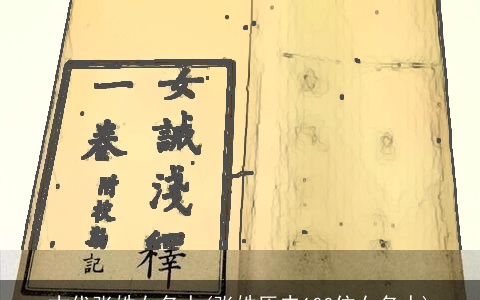 女誡淺釋
一卷附校勘記
古代张姓女名人(张姓历史100位女名人)